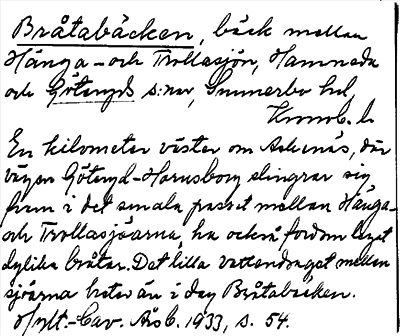 Bråtabäcken, bäck mellan
Hånga- och Trollasjön, Hamneda
och Göteryds s:nar, Sunnerbo hd,
Kronob. l.
En kilometer väster om Askenäs, där
vägen Göteryd-Hornsborg slingrar sig
fram i det smala passet mellan Hånga-
och Trollasjöarna, ha också fordom legat
dylika bråtar. Det lilla vattendraget mellan
sjöarna heter än i dag Bråtabäcken.
Hylt.-Cav. Årsb. 1933, s. 54.